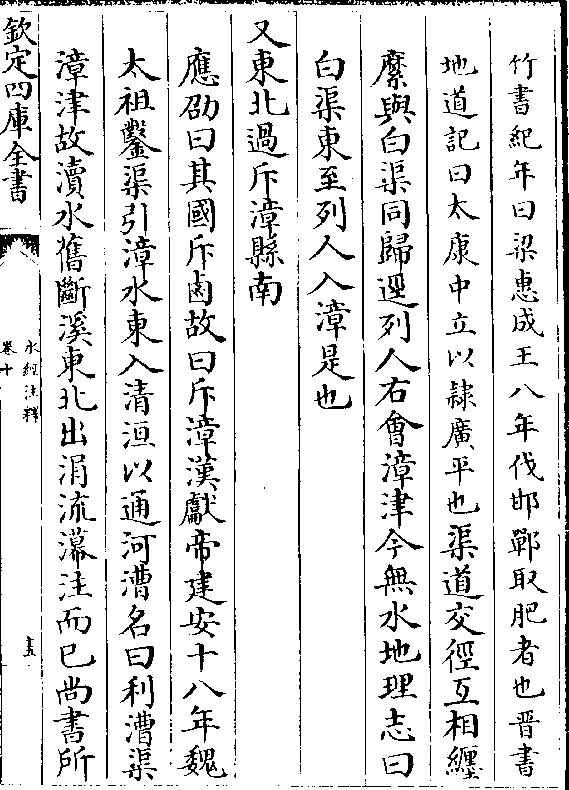 竹書紀年曰梁惠成王八年伐邯鄲取肥者也晉書
地道記曰太康中立以隸廣平也渠道交徑互相纒
縻與白渠同歸逕列人右會漳津今無水地理志曰
白渠東至列人入漳是也
又東北過斥漳縣南
應劭曰其國斥鹵故曰斥漳漢獻帝建安十八年魏
太祖鑿渠引漳水東入清洹以通河漕名曰利漕渠
漳津故瀆水舊斷溪東北出涓流濗注而已尚書所
欽定四庫全書
水經注釋
卷十